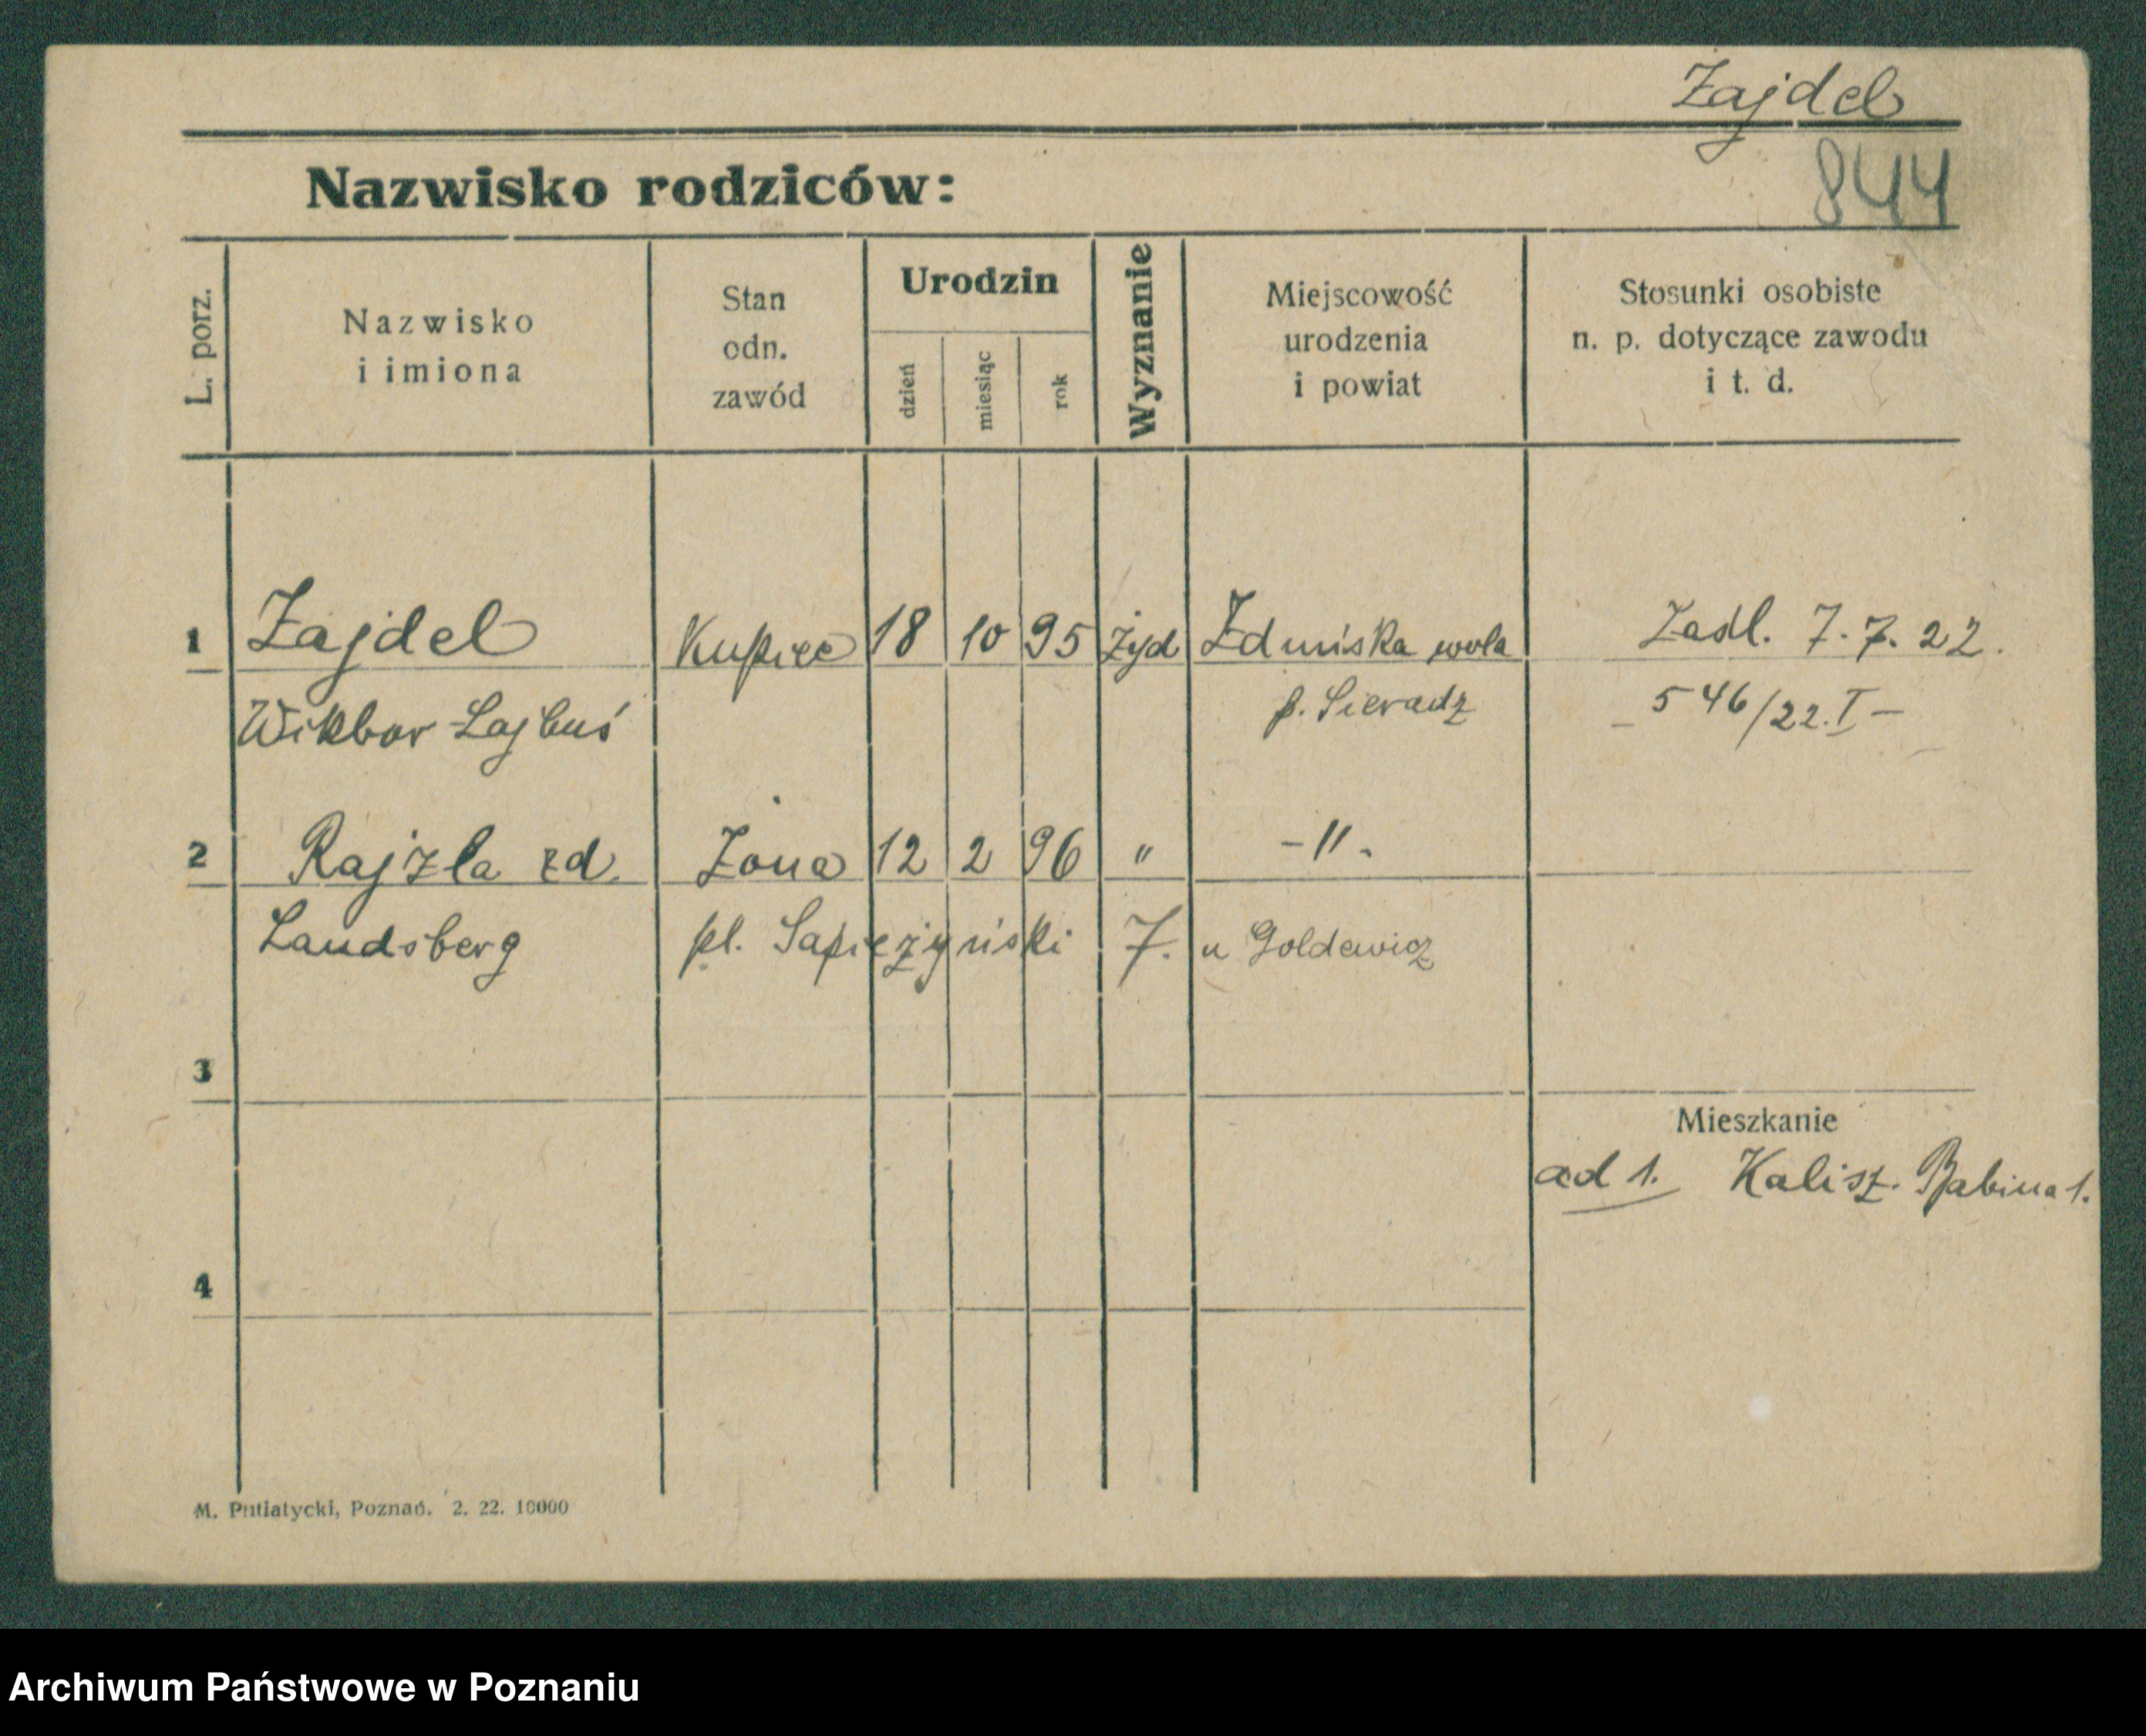 Zajdel
844
Nazwisko rodziców:
L. porz.
Nazwisko
i imiona
Stan
odn.
zawód
Urodzin
dzień
miesiąc
rok
Wyznanie
Miejscowość
urodzenia
i powiat
Stosunki osobiste
n. p. dotyczące zawodu
i t. d.
1 Zajdel Kupiec 18 10 95 żyd Zduńska wola Zaśl. 7. 7. 22.
Wiktor Lajbuś p. Sieradz - 546/22. I -
2 Rajzla zd. Żona 12 2 96 " - " -
Landsberg pl. Sapieżyński 7. u Goldewicz
3
Mieszkanie
ad 1. Kalisz. Babina 1.
4
M. Putiatycki, Poznań. 2. 22. 10000
Archiwum Państwowe w Poznaniu